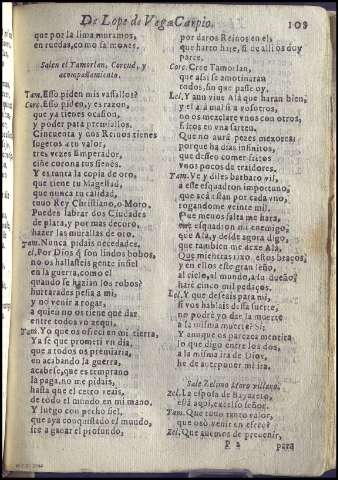 De Lope de Vega Carpio.
109
que por la lima muramos,
en ruedas, como
Salen el Tamorlan, Corcud, y
acompañamiento.
Tam. Esso piden mis vassallos?
Corc. Esso piden, y es razon,
que ya tienes ocasion,
y poder para premiallos.
Cincuenta y dos Reinos tienes
sugetos a tu valor,
tres vezes Emperador,
ciñe corona tus sienes.
Y es tanta la copia de oro,
que tiene tu Magestad,
que nunca tu calidad,
tuuo Rey Christiano, o Moro.
Puedes labrar dos Ciudades
de plata, y por mas decoro,
hazer las murallas de oro.
Tam. Nunca pidais necedades.
Por Dios q̃ son lindos bobos,
no os hallasteis gente infiel
en la guerra, como el
quando se hazian los robos?
hurtarades pesia a mi,
y no venir a rogar,
a quien no os tiene que dar
entre todos vo zequi.
Tam. Yo que os ofreci en mi tierra,
Ya se que prometi vn dia,
que a todos os premiaria,
en acabando la guerra,
acabese, que es temprano
la paga, no me pidais,
hasta que el cetro veais,
de todo el mundo en mi mano.
Y luego con pecho fiel,
que aya conquistado el mundo,
ire a ganar el profundo,
por daros Reinos en el,
que harto hare, si de alli os doy
parte.
Corc. Cree Tamorlan,
que assi se amotinaran
todos, sin que passe oy.
Zel. Y aun viue Alà que haran bien,
y el à mal si a vosotros,
no os mezclare vnos con otros,
Estos en vna sarten.
Que no aurà pezes mexores,
porque ha dias infinitos,
que desseo comer fritos
vnos pocos de traidores.
Tam. Ve y diles barbaro vil,
a esse esquadron importuno,
que acà estan por cada vno,
rogandome veinte mil.
Que menos falta me harà,
esse esquadron mi enemigo,
que Alà, y desde agora digo,
que tambien me dexe Alà.
Que mientras viuo, estos braços,
y en ellos este gran leño,
al cielo, al mundo, a su dueño,
harè cinco mil pedaços.
Zel. Y que desseais para mi,
si vos hablais dessa suerte,
no podrà yo dar la muerte
a la misma muerte? Si;
Y aunque os parezca mentira
lo que digo entre los dos,
a la misma ira de Dios,
he de anteponer mi ira.
Sale Zelimo Moro villano.
Zel. La espola de Bayaceto,
està aqui, excelso señor.
Tam. Que tuuo tanto valor,
que osò venir en efeto?
Zel. Que auemos de preuenir,
P 2
para